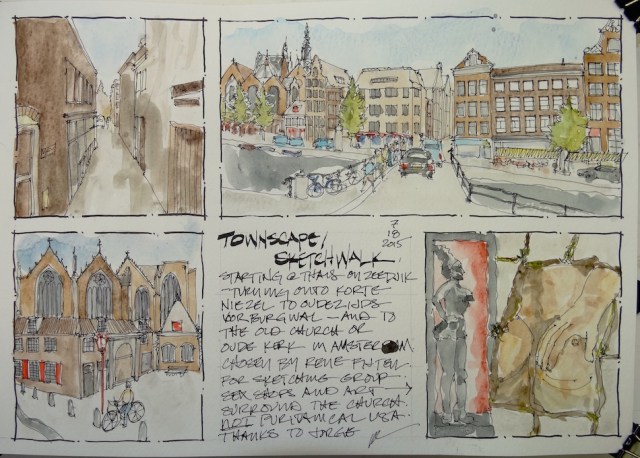 TOWNSCAPE/
SKETCHWALK
7
18
2015
STARTING @ THAIS ON ZEEDIJK
- TURNING ONTO KORTE
NIEZEL TO OUDEZIJDS
VOORBURGWAL - AND TO
THE OLD CHURCH OR
OUDE KERK IN AMSTERDAM
CHOSEN BY RENE
FOR SKETCHING GROUP
SEX SHOPS AND ART →
SURROUND THE CHURCH.
NOT PURITANICAL USA.
THANKS TO JORGE